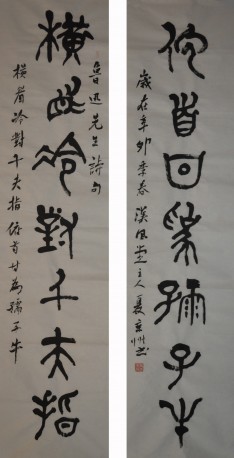 魯迅先生詩句
橫眉冷對千夫指
橫眉冷對千夫指俯首甘為孺子牛
俯首甘為孺子牛
歲在辛卯季春漢風堂主人夏